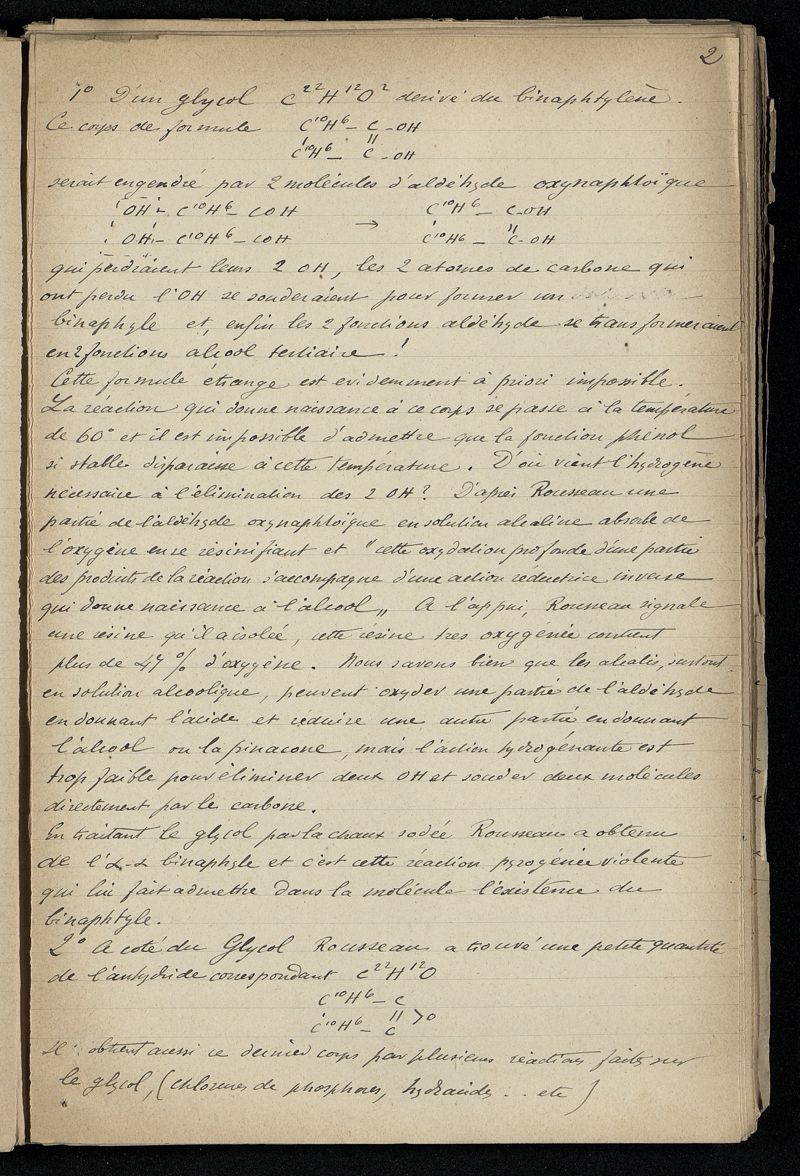 2
1° D'un glycol C²²H¹²O² dérivé du binaphtylène.
Ce corps de formule C¹⁰H⁶ - C - OH
C¹⁰H⁶ - C - OH
serait engendré par 2 molécules d'aldéhyde oxynaphtoïque
OH - C¹⁰H⁶ - COH → C¹⁰H⁶ - C-OH
OH - C¹⁰H⁶ - COH C¹⁰H⁶ - C-OH
qui perdraient leurs 2 OH, les 2 atomes de carbone qui
ont perdu l'OH se souderaient pour former un
binaphyle et, enfin les 2 fonctions aldéhyde se transformeraient
en 2 fonctions alcool tertiaire !
Cette formule étrange est evidemment à priori impossible.
La réaction qui donne naissance à ce corps se passe à la température
de 60° et il est impossible d'admettre que la fonction phénol
si stable disparaisse à cette température. D'où vient l'hydrogène
nécessaire à l'élimination des 2 OH? D'après Rousseau une
partie de l'aldéhyde oxynaphtoïque en solution alcaline absorbe de
l'oxygène en se résinifiant et "cette oxydation profonde d'une partie
des produits de la réaction s'accompagne d'une action réductrice inverse
qui donne naissance à l'alcool" A l'appui, Rousseau signale
une résine qu'il a isolée, cette résine très oxygénée contient
plus de 47 % d'oxygène. Nous savons bien que les alcalis, surtout
en solution alcoolique, peuvent oxyder une partie de l'aldéhyde
en donnant l'acide et réduire une autre partie en donnant
l'alcool ou la pinacone, mais l'action hydrogénante est
trop faible pour éliminer deux OH et souder deux molécules
directement par le carbone.
En traitant le glycol par la chaux sodée Rousseau a obtenu
de l'α-α binaphyle et c'est cette réaction pyrogénée violente
qui lui fait admettre dans la molécule l'existence du
binaphtyle.
2° A coté du Glycol Rousseau a trouvé une petite quantité
de l'anhydride correspondant C²²H¹²O
C¹⁰H⁶ - C
C¹⁰H⁶ - C >O
Il obtient aussi ce dernier corps par plusieurs réactions faites sur
le glycol, (chlorures de phosphores, hydracides .. etc)